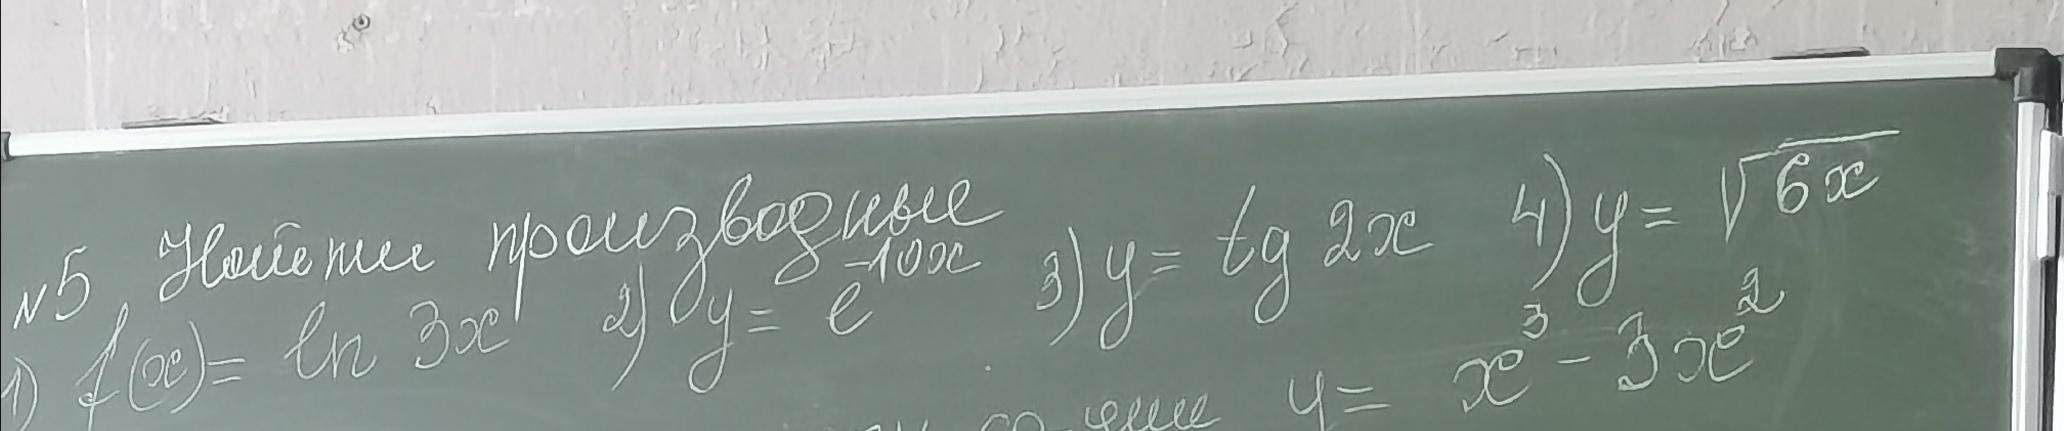 №5, Найти производные
1) f(x) = ln 3x 2) y = e^{-10x} 3) y = tg 2x 4) y = √6x
y = x³ - 3x²